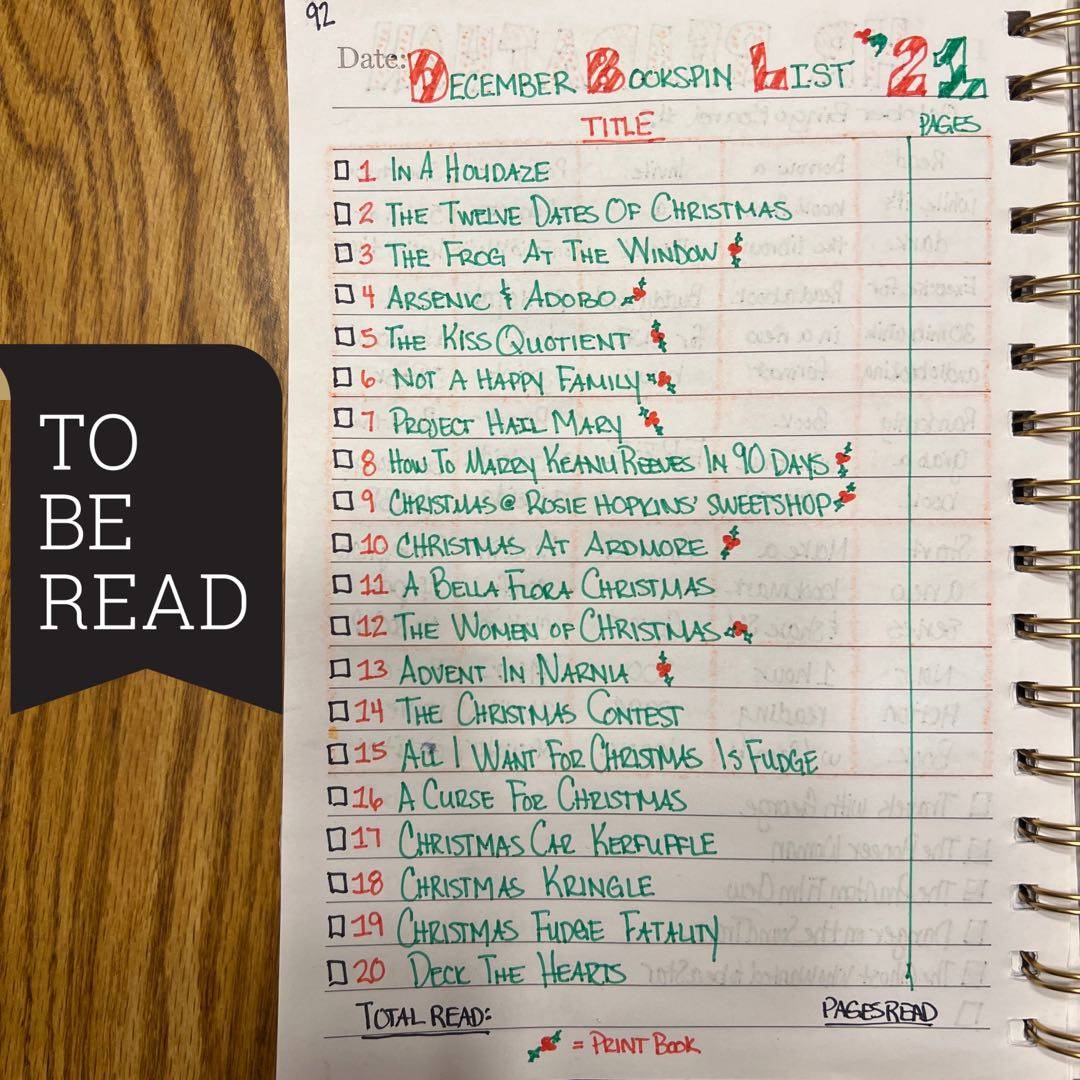 92
Date: DECEMBER BOOKSPIN LIST '21
TITLE PAGES
1 IN A HOLIDAZE
2 THE TWELVE DATES OF CHRISTMAS
3 THE FROG AT THE WINDOW
4 ARSENIC & ADOBO
5 THE KISS QUOTIENT
6 NOT A HAPPY FAMILY
7 PROJECT HAIL MARY
8 HOW TO MARRY KEANU REEVES IN 90 DAYS
9 CHRISTMAS @ ROSIE HOPKINS' SWEETSHOP
10 CHRISTMAS AT ARDMORE
11 A BELLA FLORA CHRISTMAS
12 THE WOMEN OF CHRISTMAS
13 ADVENT IN NARNIA
14 THE CHRISTMAS CONTEST
15 ALL I WANT FOR CHRISTMAS IS FUDGE
16 A CURSE FOR CHRISTMAS
17 CHRISTMAS CAR KERFUFFLE
18 CHRISTMAS KRINGLE
19 CHRISTMAS FUDGE FATALITY
20 DECK THE HEARTS
TOTAL READ: PAGES READ
= PRINT BOOK
TO
BE
READ